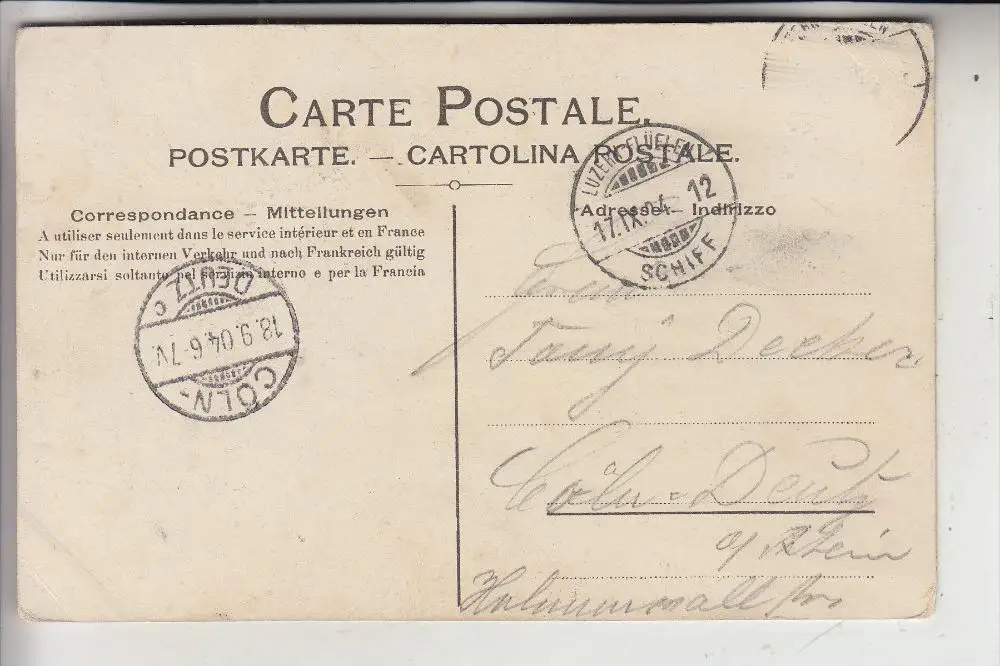 CARTE POSTALE.
POSTKARTE. — CARTOLINA POSTALE.
Correspondance — Mitteilungen
A utiliser seulement dans le service intérieur et en France
Nur für den internen Verkehr und nach Frankreich gültig
Utilizzarsi soltanto nel servizio interno e per la Francia
Adresse — Indirizzo
LUZERN-FLÜELEN
17.IX.04. 12
SCHIFF
CÖLN-
18.9.04.6-7V.
DEUTZ
c
Decker
Cöln-Deutz
a/ Rhein